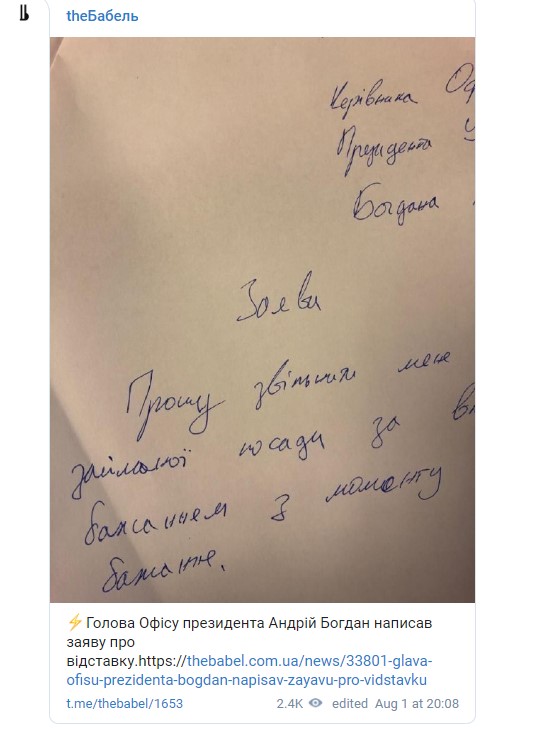 theБабель
Керівника Оф
Президента У
Богдана
Заява
Прошу звільнити мене
займаної посади за вл
бажанням з моменту
бажання.
⚡Голова Офісу президента Андрій Богдан написав
заяву про
відставку.https://thebabel.com.ua/news/33801-glava-
ofisu-prezidenta-bogdan-napisav-zayavu-pro-vidstavku
t.me/thebabel/1653 2.4K edited Aug 1 at 20:08